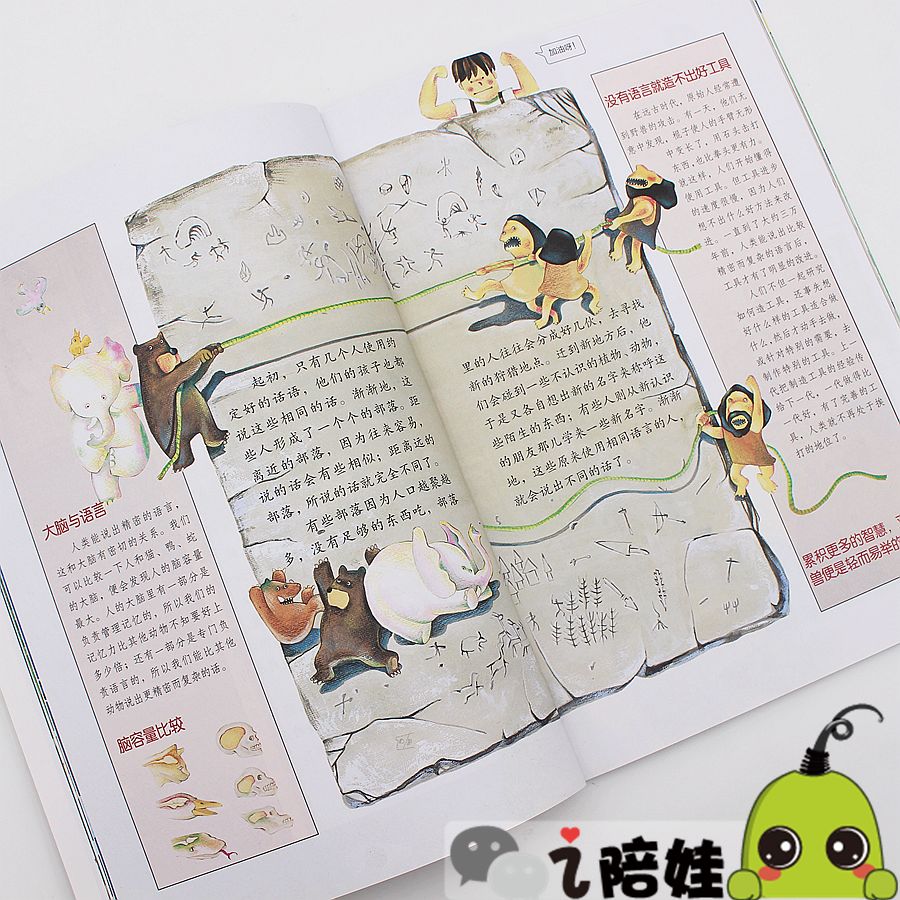 加油呀！
没有语言就造不出好工具
在远古时代，原始人经常遭
到野兽的攻击。有一天，他们无
意中发现，棍子使人的手臂无形
中变长了，用石头击打
东西，也比拳头更有力。
就这样，人们开始懂得
使用工具。但工具进步
的速度很慢，因为人们
想不出什么好方法来改
进。一直到了大约三万
年前，人类能说出比较
精密而复杂的语言后，
工具才有了明显的改进。
人们不但一起研究
如何造工具，还事先想
好什么样的工具适合做
什么，然后才动手去做，
或针对特别的需要，去
制作特别的工具。上一
代把制造工具的经验传
给下一代，一代做得比
一代好，有了完善的工
具，人类就不再处于挨
打的地位了。
累积更多的智慧，
便是轻而易举的
起初，只有几个人使用约
定好的话语，他们的孩子也都
说这些相同的话。渐渐地，这
些人形成了一个个的部落。距
离近的部落，因为往来容易，
说的话会有些相似；距离远的
部落，所说的话就完全不同了。
有些部落因为人口越聚越
多，没有足够的东西吃，部落
里的人往往会分成好几伙，去寻找
新的狩猎地点。迁到新地方后，他
们会碰到一些不认识的植物、动物，
于是又各自想出新的名字来称呼这
些陌生的东西；有些人则从新认识
的朋友那儿学来一些新名字。渐渐
地，这些原来使用相同语言的人，
就会说出不同的话了。
大脑与语言
人类能说出精密的语言，
这和大脑有密切的关系。我们
可以比较一下人和猫、鸭、蛇
的大脑，便会发现人的脑容量
最大。人的大脑里有一部分是
负责管理记忆的，所以我们的
记忆力比其他动物不知要好上
多少倍；还有一部分是专门负
责语言的，所以我们能比其他
动物说出更精密而复杂的话。
脑容量比较
i陪娃